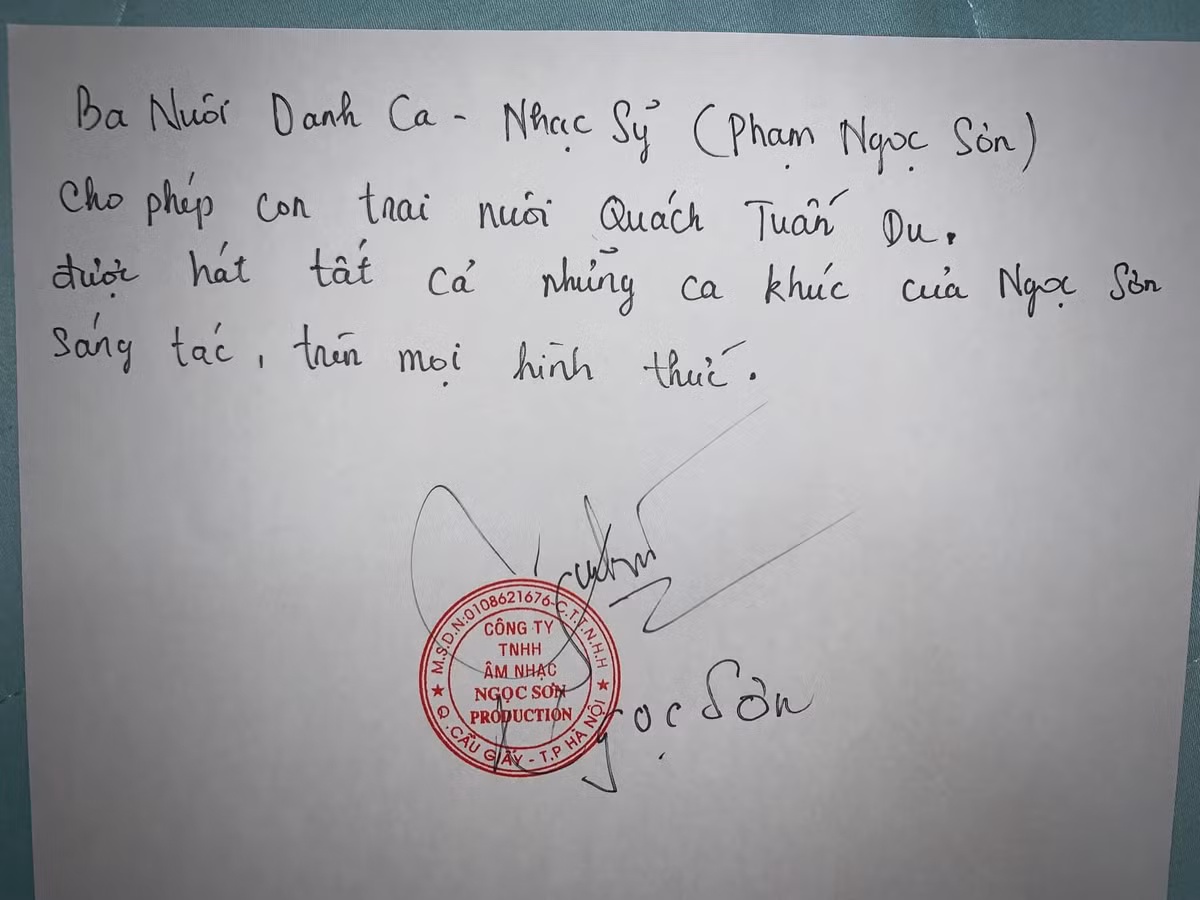 Ba Nuôi Danh Ca - Nhạc Sỷ (Phạm Ngọc Sơn)
Cho phép con trai nuôi Quách Tuấn Du.
được hát tất cả những ca khúc của Ngọc Sơn
Sáng tác, trên mọi hình thức.
M.S.D.N:0108621676-C.T.T.N.H.H
CÔNG TY
TNHH
ÂM NHẠC
NGỌC SƠN
PRODUCTION
Q.CẦU GIẤY - T.P HÀ NỘI
Ngọc Sơn